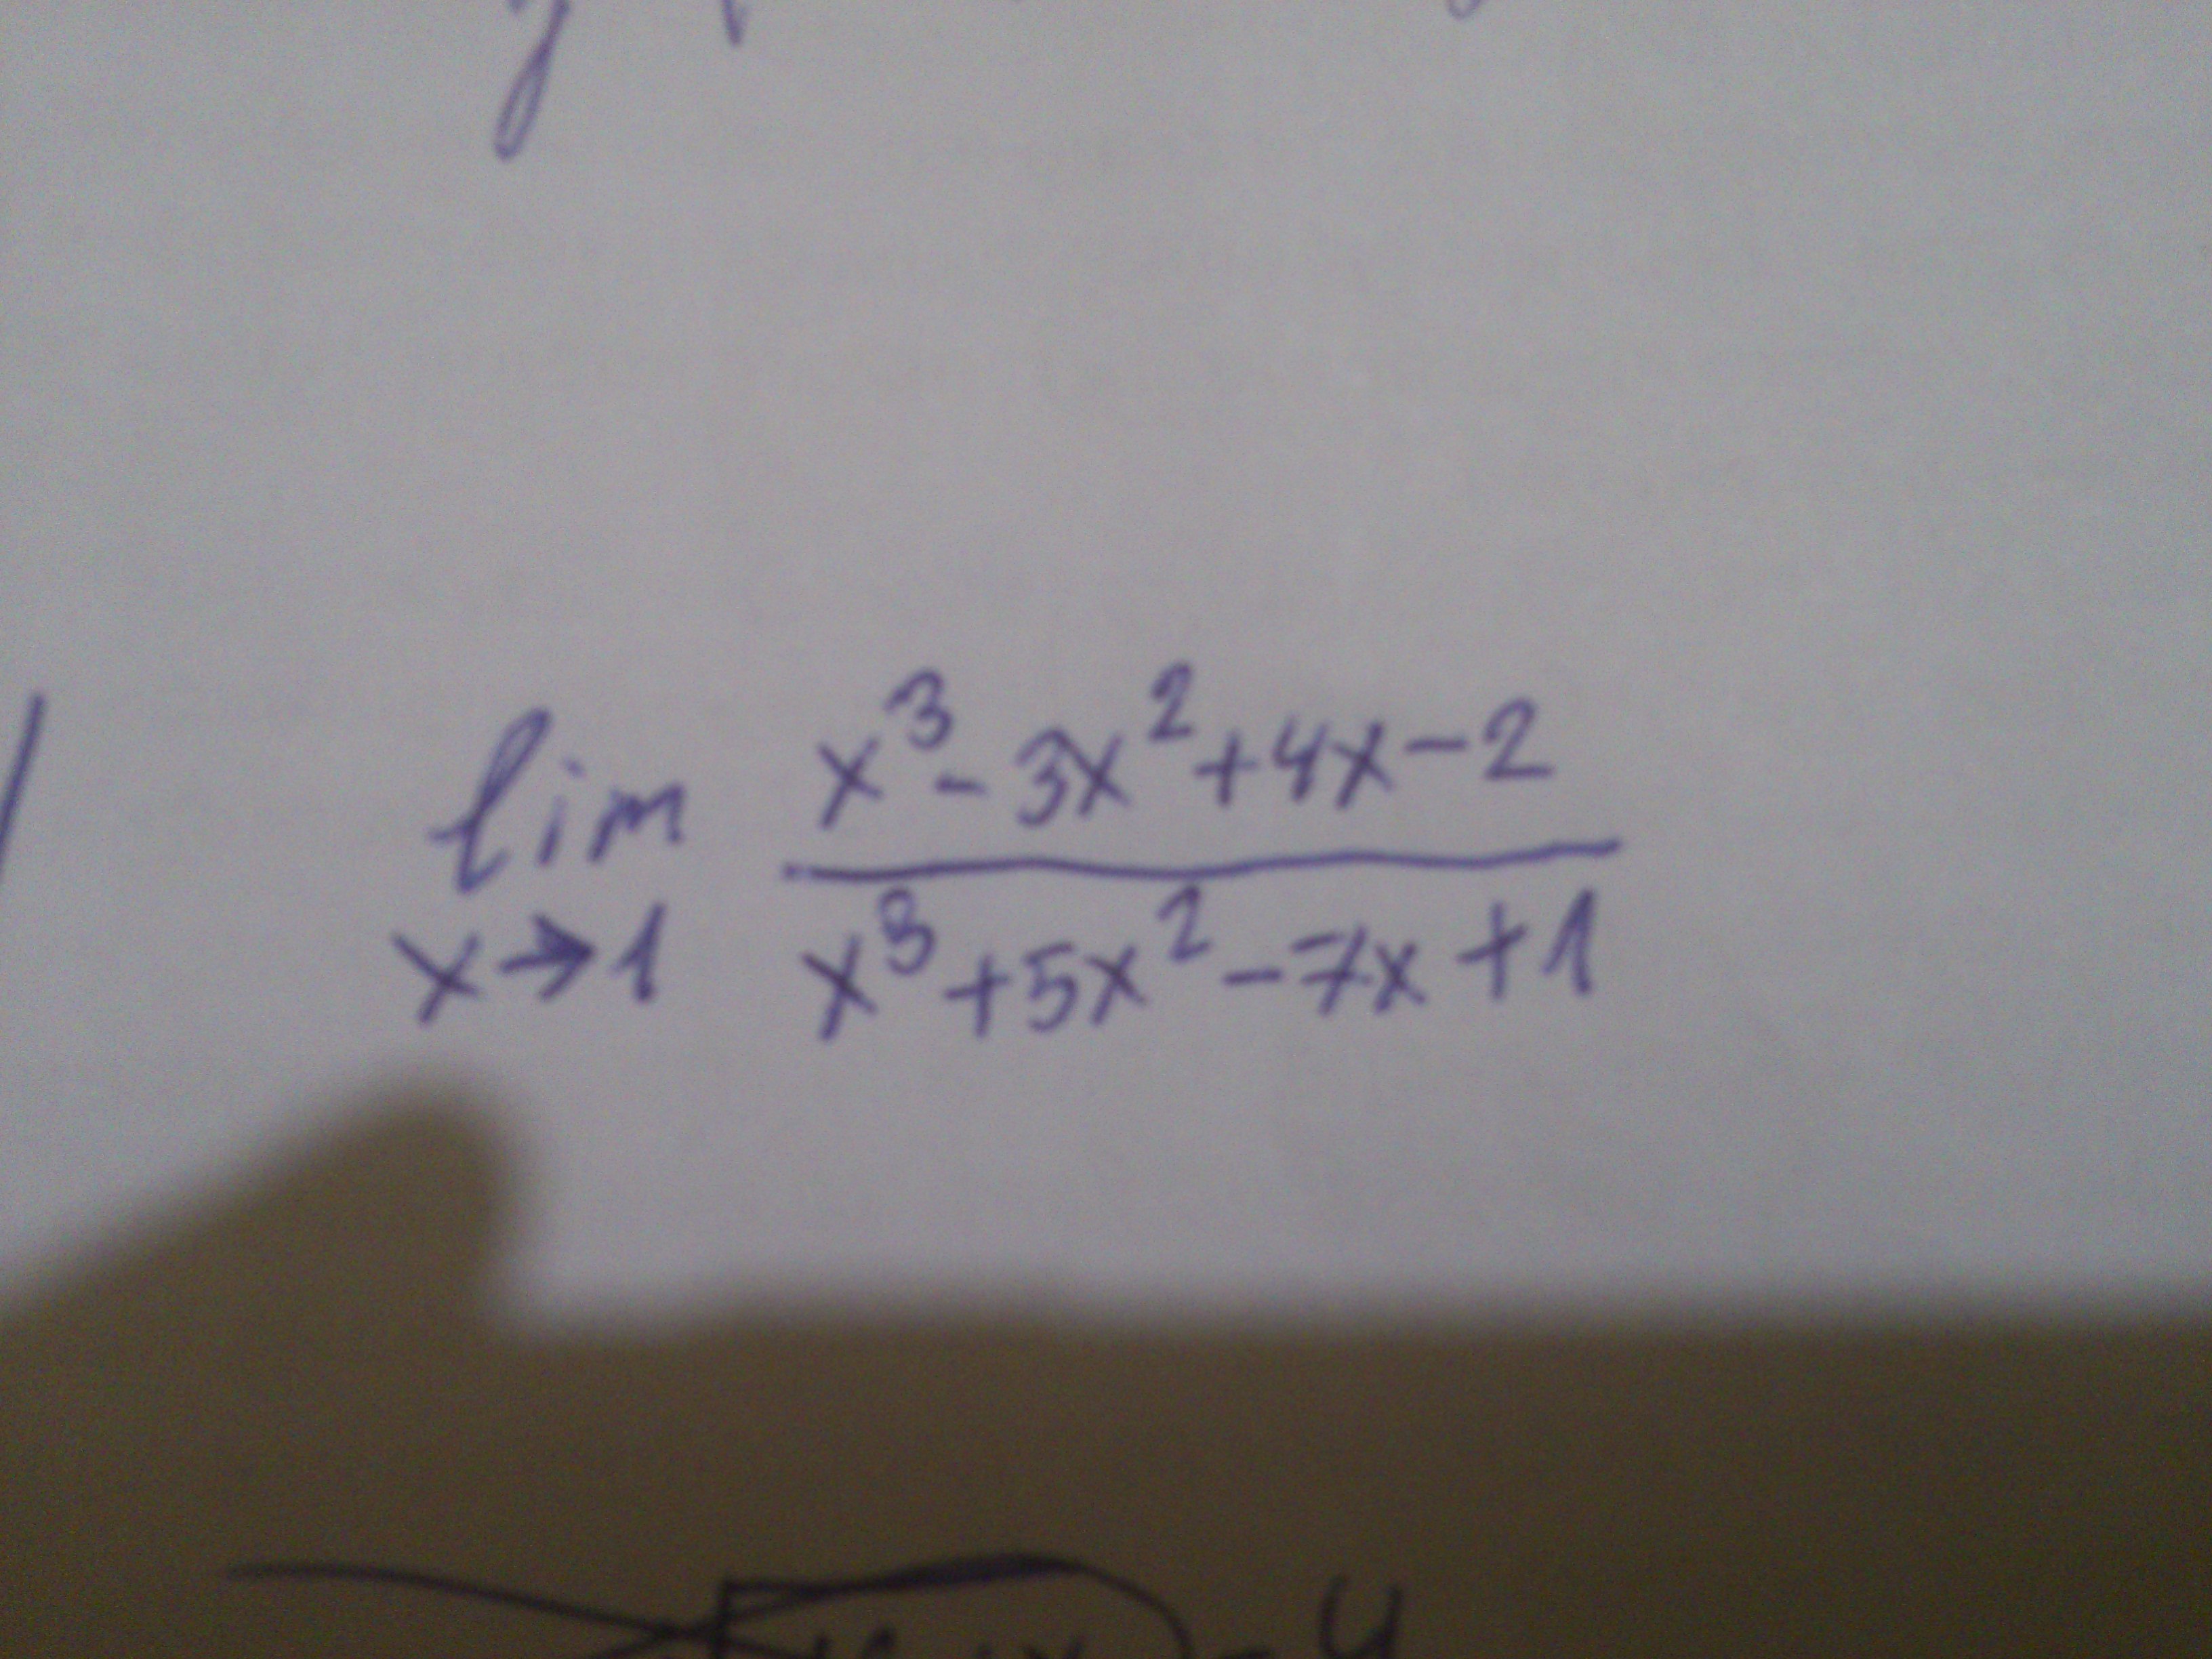 lim x→1 (x³ - 3x² + 4x - 2) / (x³ + 5x² - 7x + 1)